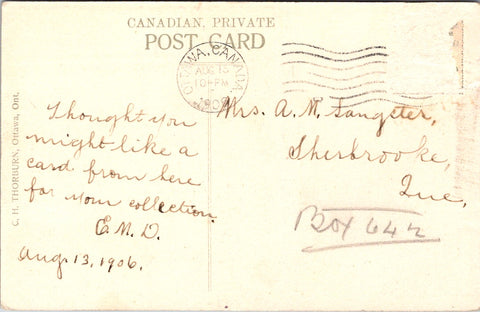 CANADIAN, PRIVATE
POST CARD
OTTAWA, CANADA
AUG 13
10-PM
C. H. THORBURN, Ottawa, Ont.
Thought you
might like a
card from here
for your collection.
E.M.D.
Aug. 13, 1906.
Mrs. A. M. Sangster,
Sherbrooke,
Que,
Box 642